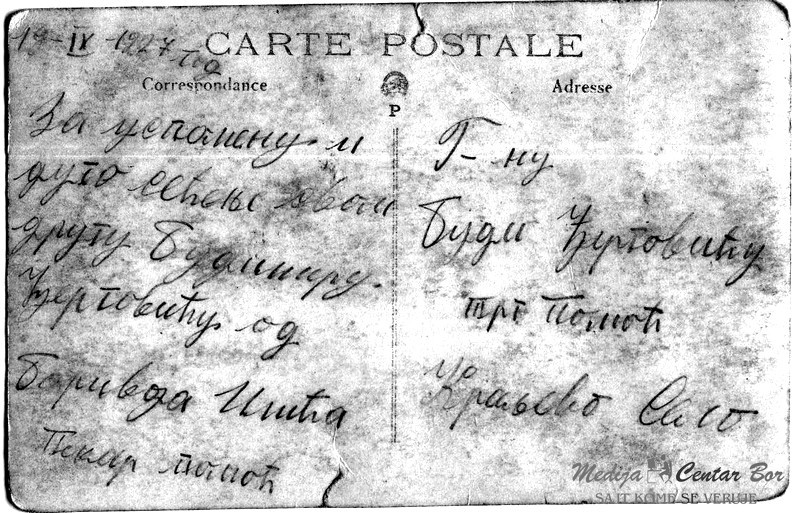 19-IV 1927 год
CARTE POSTALE
Correspondance
Adresse
P
За успомену и
дуго сећење свом
другу Будимиру
Ђуртовићу од
Боривоја Илића
Пекар помоћ
Г-ну
Буди Ђуртовићу
трг помоћ
Краљево Село
Medija Centar Bor
SAJT KOME SE VERUJE